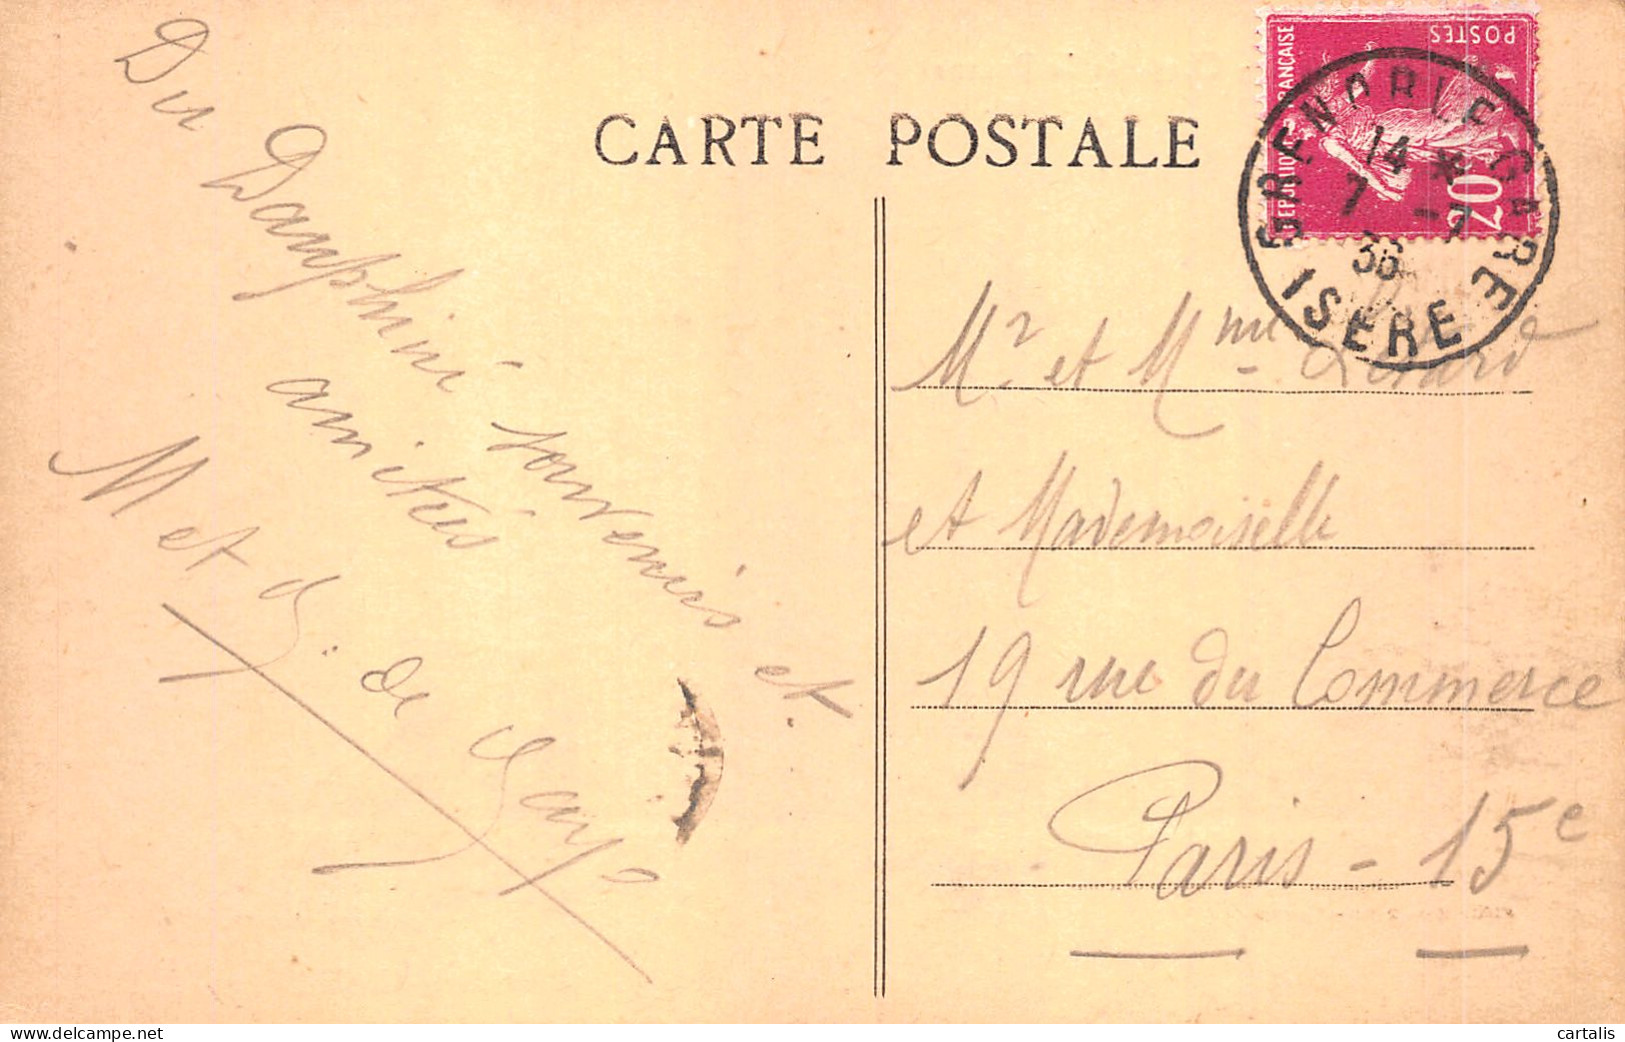 CARTE POSTALE
POSTES
REPUBLIQUE FRANCAISE
20c
GRENOBLE GARE
14 *
7 -7
36
ISERE
Du Dauphiné souvenirs et
amitiés
M et G. de
Mr. et Mme
et Mademoiselle
19 rue du Commerce
Paris - 15e
delcampe.net
cartalis